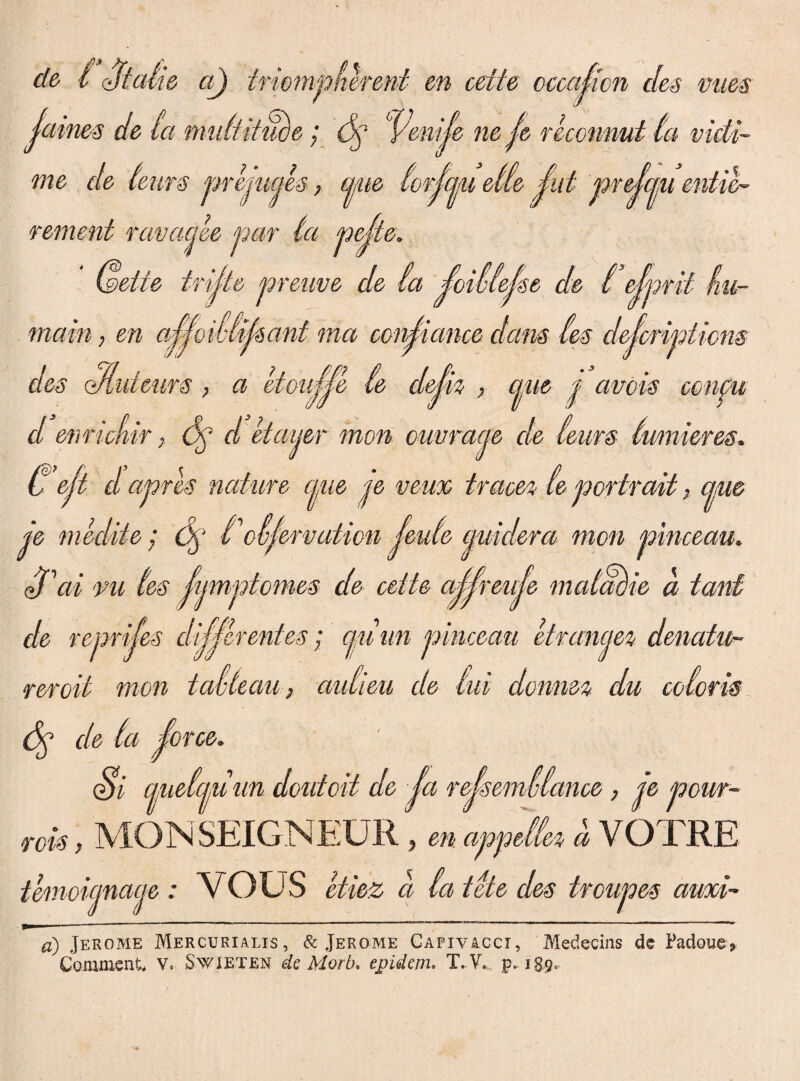 de l'Jtalie a) triomphèrent en cette occaſion des vues
ſaines de la multitude ; & Veniſe ne ſe rèconnut la victi-
me de leurs préjugès, que lorſqu'elle fut preſqu'entiè-
rement ravagèe par la peſte.
Cette triſte preuve de la foibleſse de l'eſprit hu-
main, en affoibliſsant ma confiance dans les deſcriptions
des Auteurs, a ètouffè le deſiz, que j'avois conçu
d'enrichir, & d'ètayer mon ouvrage de leurs lumieres.
C'eſt d'après nature que je veux tracez le portrait, que
je mèdite ; & l'obſervation ſeule guidera mon pinceau.
J'ai vu les ſymptomes de cette affreuſe maladie à tant
de repriſes diffèrentes ; qu'un pinceau ètrangez denatu-
reroit mon tableau, aulieu de lui donnez du coloris
& de la force.
Si quelqu'un doutoit de ſa reſsemblance, je pour-
rois, MONSEIGNEUR, en appellez à VOTRE
tèmoignage : VOUS ètiez à la tête des troupes auxi-
a) JEROME MERCURIALIS, & JEROME CAPIVACCI, Medecins de Padoue,
Comment. V. SWIETEN de Morb. epidem. T. V. p. 189.